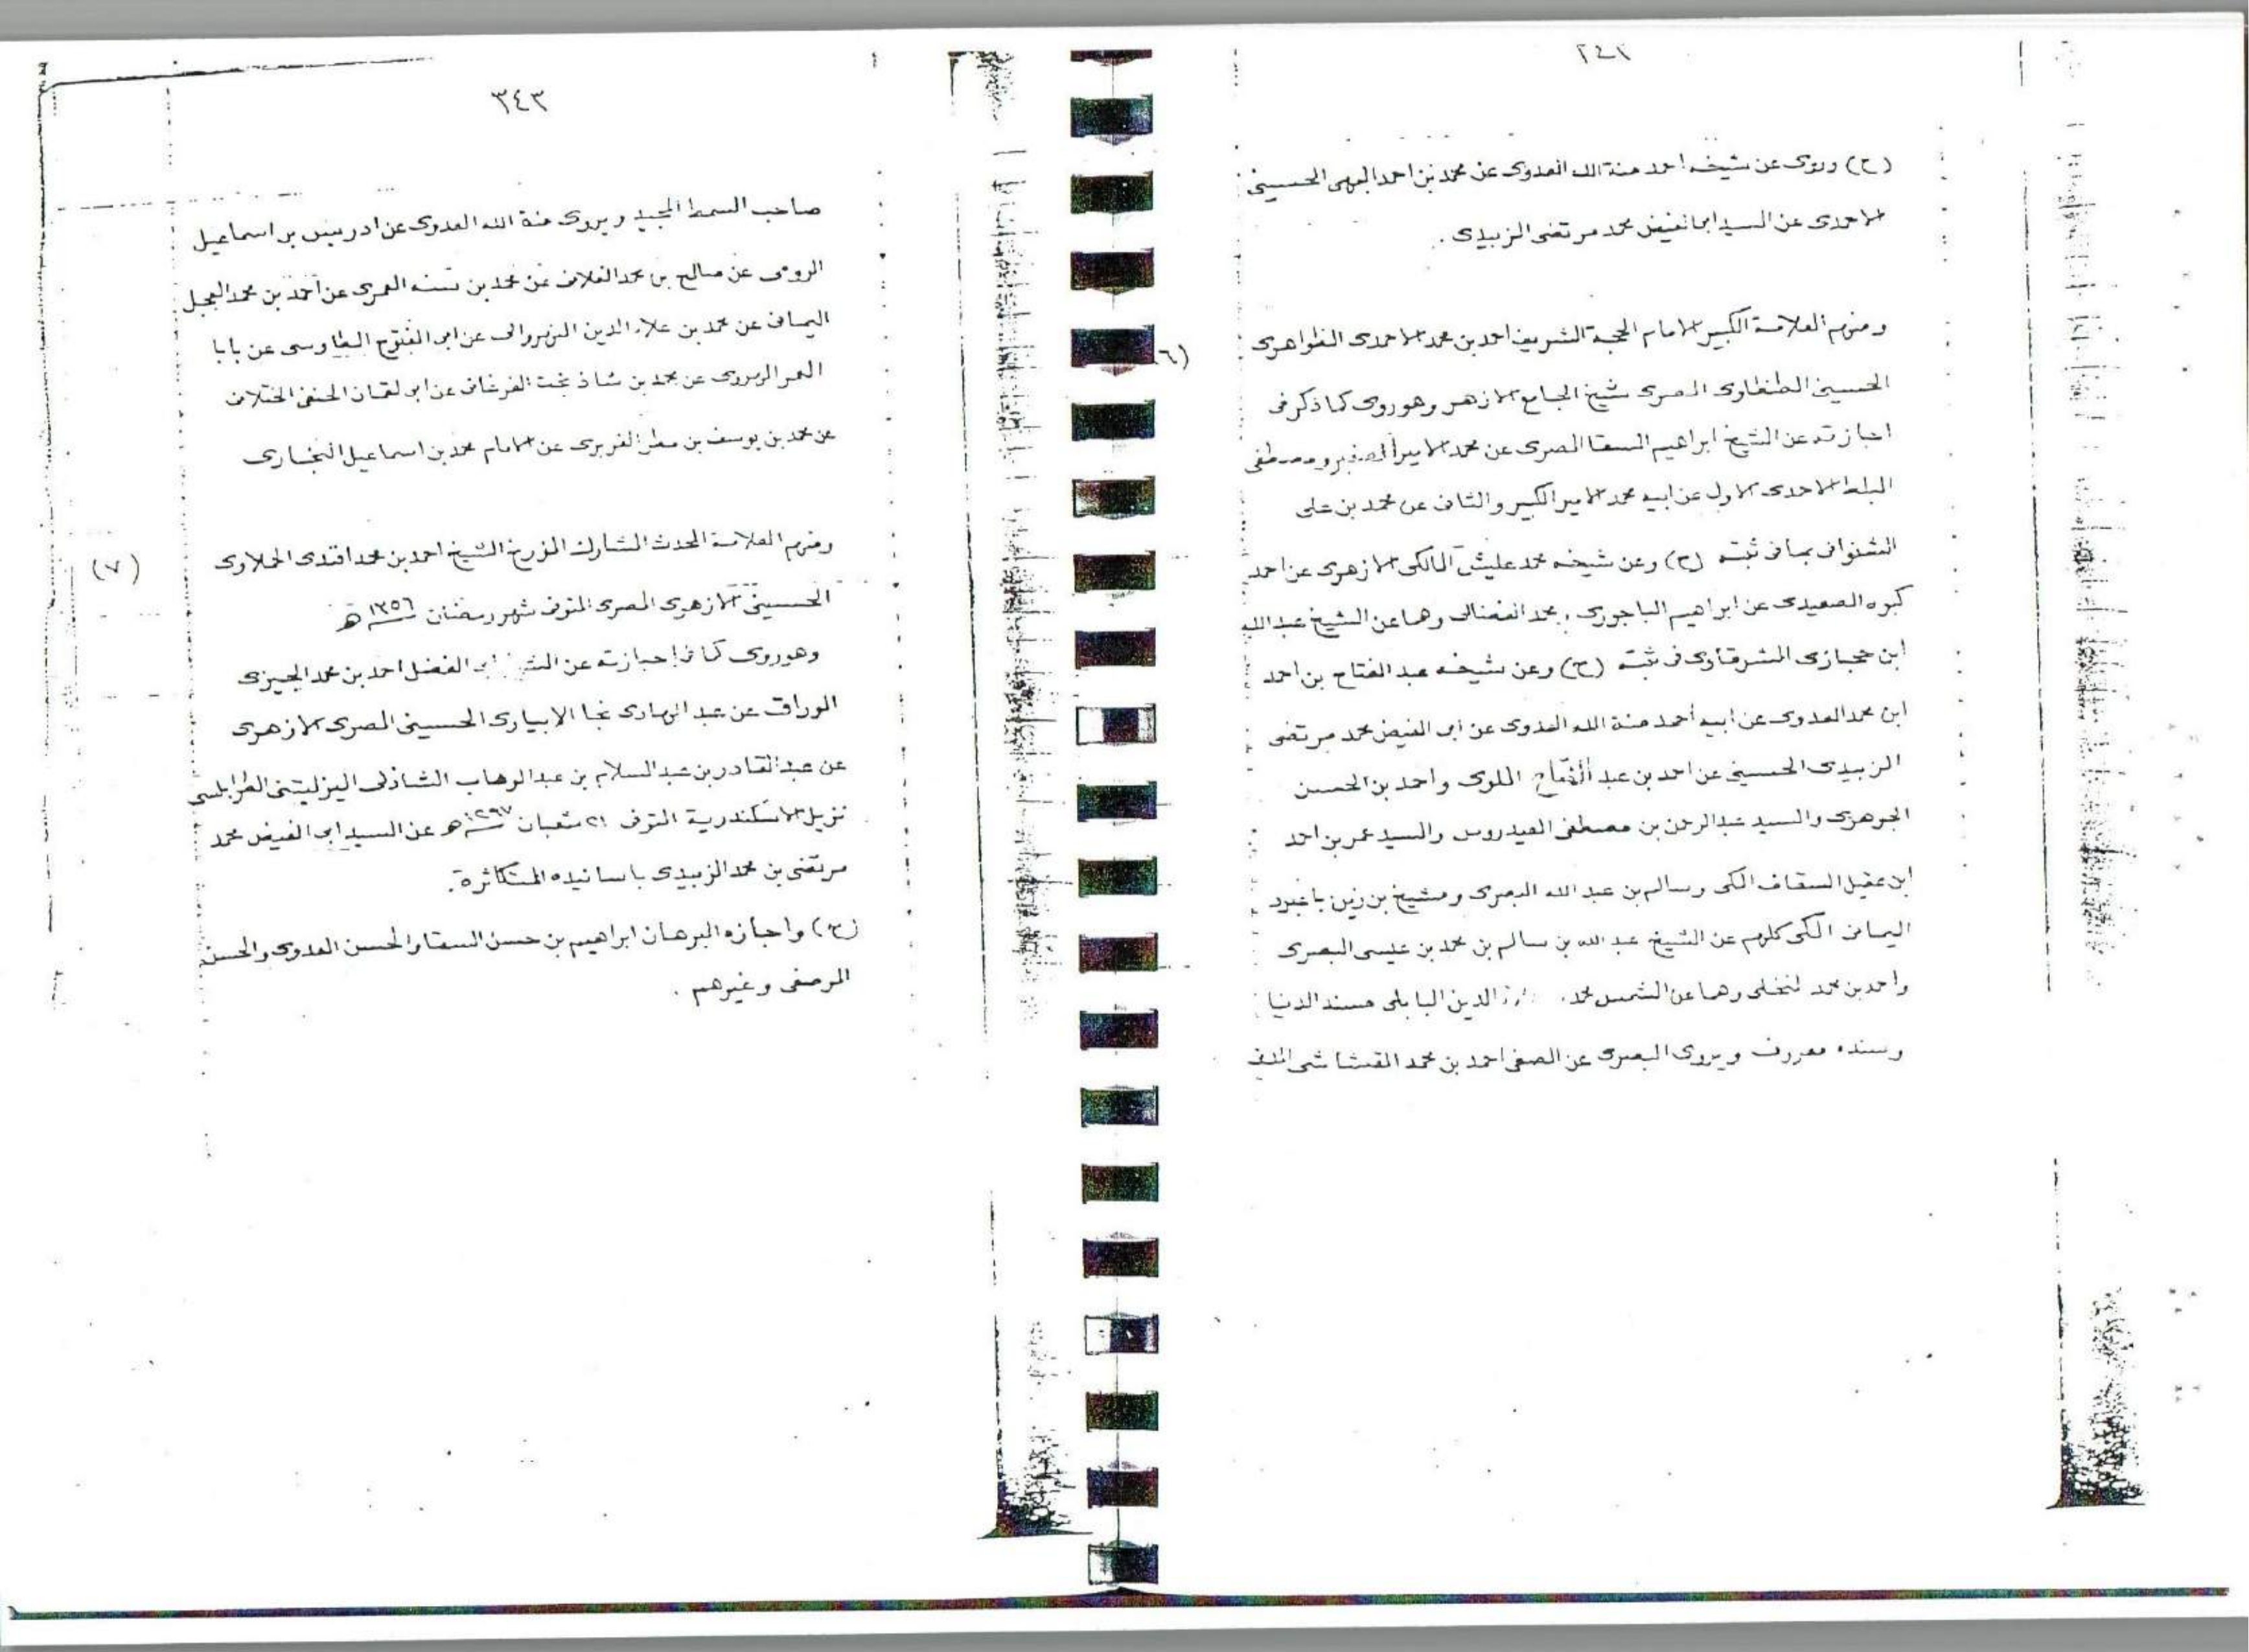 (ح) وروى عن شيخه احمد منة الله العدوى عن محمد بن احمد البهى الحسينى
الاحمدى عن السيد ابى الفيض محمد مرتضى الزبيدى .
ومنهم العلامة الكبير الامام الحجة الشريف احمد بن محمد الاحمدى الظواهرى
(٦)
الحسينى الطنطاوى المصرى شيخ الجامع الازهر وهو روى كما ذكر فى
اجازته عن الشيخ ابراهيم السقا المصرى عن محمد الامير الصغير ومصطفى
البلط الاحمدى الاول عن ابيه محمد الامير الكبير والثانى عن محمد بن على
الشنوانى بما فى ثبته (ح) وعن شيخه محمد عليش المالكى الازهرى عن احمد
كبوه الصعيدى عن ابراهيم الباجورى ومحمد الفضالى وهما عن الشيخ عبد الله
ابن حجازى الشرقاوى فى ثبته (ح) وعن شيخه عبد الفتاح بن احمد
ابن محمد العدوى عن ابيه احمد منة الله العدوى عن ابى الفيض محمد مرتضى
الزبيدى الحسينى عن احمد بن عبد الفتاح الملوى واحمد بن الحسن
الجوهرى والسيد عبد الرحمن بن مصطفى العيدروس والسيد عمر بن احمد
ابن عقيل السقاف المكى وسالم بن عبد الله البصرى ومشيخ بن زين باعبود
اليمانى المكى كلهم عن الشيخ عبد الله بن سالم بن محمد بن عيسى البصرى
واحمد بن محمد النخلى وهما عن الشمس محمد الدين البابلى مسند الدنيا
وسنده معروف ويروى البصرى عن الصفى احمد بن محمد القشاشى المدنى
٣٤٣
صاحب السمط المجيد ويروى منة الله العدوى عن ادريس بن اسماعيل
الرومى عن صالح بن محمد الفلانى عن محمد بن سنه العمرى عن احمد بن محمد العجل
اليمانى عن محمد بن علاء الدين النهروالى عن ابى الفتوح الطاوسى عن بابا
المعمر الهروى عن محمد بن شاذ بخت الفرغانى عن ابى لقمان الحنفى الختلانى
عن محمد بن يوسف بن مطر الفربرى عن الامام محمد بن اسماعيل البخارى
ومنهم العلامة المحدث المشارك المؤرخ الشيخ احمد بن محمد افندى الحملاوى
(٧)
الحسينى الازهرى المصرى المتوفى شهر رمضان سنة ١٣٥٦ هـ
وهو روى كما فى اجازته عن ابى الفضل احمد بن محمد الجيزى
الوراق عن عبد الهادى نجا الابيارى الحسينى المصرى الازهرى
عن عبد القادر بن عبد السلام بن عبد الوهاب الشاذلى اليزليتنى الطرابلسى
نزيل الاسكندرية المتوفى ٢١ شعبان سنة ١٢٩٧ هـ عن السيد ابى الفيض محمد
مرتضى بن محمد الزبيدى باسانيده المتكاثرة .
(ح) واجازه البرهان ابراهيم بن حسن السقا والحسن العدوى والحسن
المرصفى وغيرهم .